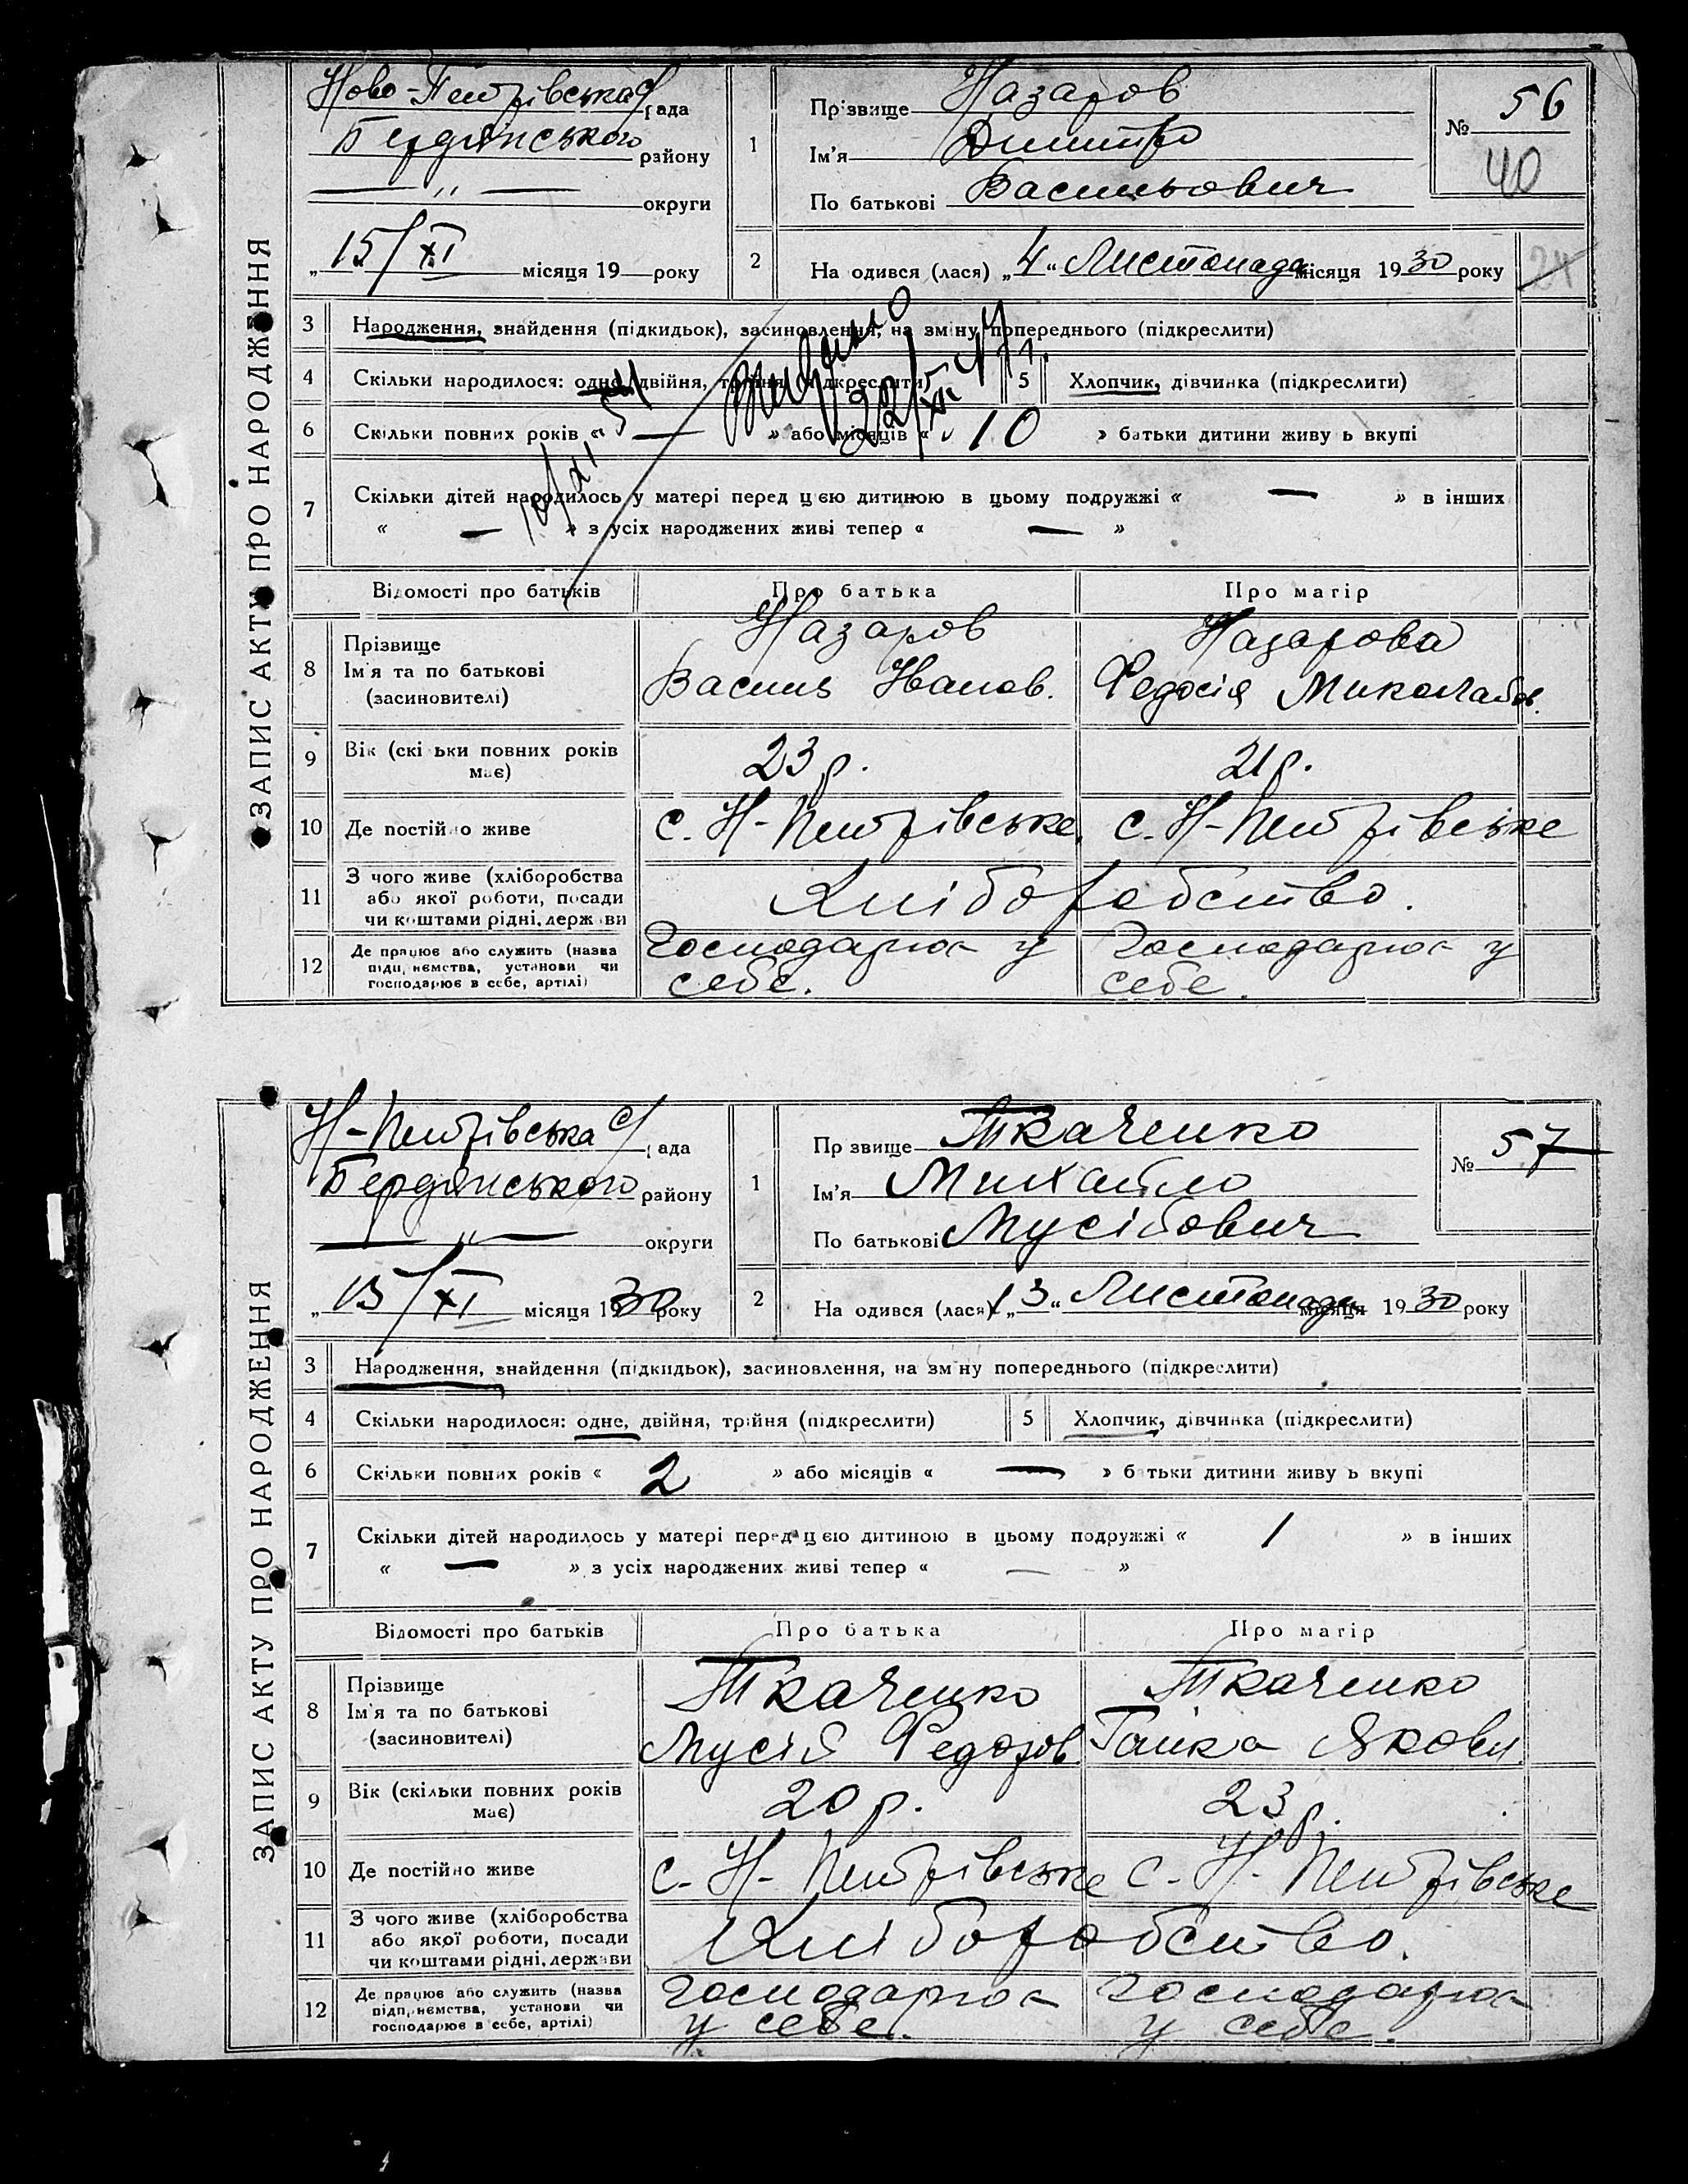 ЗАПИС АКТУ ПРО НАРОДЖЕННЯ
Ново-Петрівська с/рада
Бердянського району
— „ — округи
„15/XI місяця 19 року
1 Прізвище Назаров
Ім'я Дмитро
По батькові Васильович
№ 56
40
2 На одився (лася) „4“ Листопада місяця 1930 року
24
3 Народження, знайдення (підкидьок), засиновлення, на зміну попереднього (підкреслити)
4 Скільки народилося: одне, двійня, трійня (підкреслити) 5 Хлопчик, дівчинка (підкреслити)
6 Скільки повних років « — » або місяців « 10 » батьки дитини живу ь вкупі
7 Скільки дітей народилось у матері перед цією дитиною в цьому подружжі « — » в інших
« — » з усіх народжених живі тепер « — »
Відомості про батьків Про батька Про матір
8 Прізвище
Ім'я та по батькові
(засиновителі)
Назаров
Василь Иванов.
Назарова
Федосія Миколаєв.
9 Вік (скі ьки повних років
має)
23 р. 21 р.
10 Де постійно живе с. Н-Петрівське, с. Н-Петрівське
11 З чого живе (хліборобства
або якої роботи, посади
чи коштами рідні, держави
Хліборобство.
12 Де працює або служить (назва
підприємства, установи чи
господарює в себе, артілі)
Господарює у
себе.
Господарює у
себе.
ЗАПИС АКТУ ПРО НАРОДЖЕННЯ
Н-Петрівська с/рада
Бердянського району
— „ — округи
„15/XI місяця 1930 року
1 Пр звище Ткаченко
Ім'я Михайло
По батькові Мусійович
№ 57
2 На одився (лася) „13“ Листопада місяця 1930 року
3 Народження, знайдення (підкидьок), засиновлення, на зм ну попереднього (підкреслити)
4 Скільки народилося: одне, двійня, трійня (підкреслити) 5 Хлопчик, дівчинка (підкреслити)
6 Скільки повних років « 2 » або місяців « — » батьки дитини живу ь вкупі
7 Скільки дітей народилось у матері перед цією дитиною в цьому подружжі « 1 » в інших
« — » з усіх народжених живі тепер « — »
Відомості про батьків Про батька Про матір
8 Прізвище
Ім'я та по батькові
(засиновителі)
Ткаченко
Мусій Федоров.
Ткаченко
Ганка Якови
9 Вік (скільки повних років
має)
20 р. 23 р.
10 Де постійно живе с. Н-Петрівське с. Н-Петрівське
11 З чого живе (хліборобства
або якої роботи, посади
чи коштами рідні, держави
Хліборобство.
12 Де працює або служить (назва
підприємства, установи чи
господарює в себе, артілі)
Господарює
у себе.
Господарює
у себе.